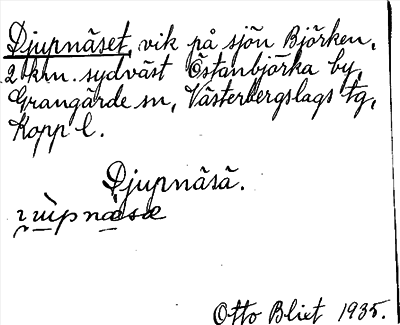 Djupnäset, vik på sjön Björken,
2 km. sydväst Östanbjörka by,
Grangärde sn, Västerbergslags tg,
Kopp l.
Djupnäsä.
Otto Blixt 1935.